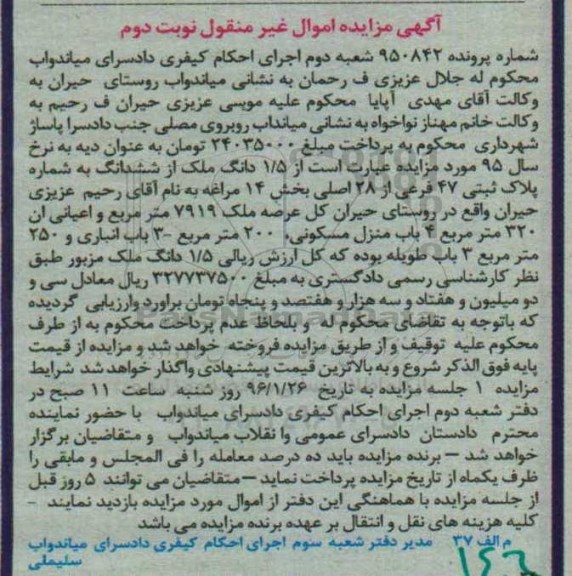 آگهی مزایده اموال غیر منقول نوبت دوم
شماره پرونده ۹۵۰۸۴۲ شعبه دوم اجرای احکام کیفری دادسرای میاندواب
محکوم له جلال عزیزی ف رحمان به نشانی میاندواب روستای حیران به
وکالت آقای مهدی آپایا محکوم علیه موسی عزیزی حیران ف رحیم به
وکالت خانم مهناز نواخواه به نشانی میانداب روبروی مصلی جنب دادسرا پاساژ
شهرداری محکوم به پرداخت مبلغ ۲۴۰۳۵۰۰۰ تومان به عنوان دیه به نرخ
سال ۹۵ مورد مزایده عبارت است از ۱/۵ دانگ ملک از ششدانگ به شماره
پلاک ثبتی ۴۷ فرعی از ۲۸ اصلی بخش ۱۴ مراغه به نام آقای رحیم عزیزی
حیران واقع در روستای حیران کل عرصه ملک ۷۹۱۹ متر مربع و اعیانی ان
۳۲۰ متر مربع ۴ باب منزل مسکونی، ۲۰۰ متر مربع -۳ باب انباری و ۲۵۰
متر مربع ۳ باب طویله بوده که کل ارزش ریالی ۱/۵ دانگ ملک مزبور طبق
نظر کارشناسی رسمی دادگستری به مبلغ ۳۲۷۷۳۷۵۰۰ ریال معادل سی و
دو میلیون و هفتاد و سه هزار و هفتصد و پنجاه تومان براورد وارزیابی گردیده
که باتوجه به تقاضای محکوم له و بلحاظ عدم پرداخت محکوم به از طرف
محکوم علیه توقیف و از طریق مزایده فروخته خواهد شد و مزایده از قیمت
پایه فوق الذکر شروع و به بالاترین قیمت پیشنهادی واگذار خواهد شد شرایط
مزایده ۱ جلسه مزایده به تاریخ ۹۶/۱/۲۶ روز شنبه ساعت ۱۱ صبح در
دفتر شعبه دوم اجرای احکام کیفری دادسرای میاندواب با حضور نماینده
محترم دادستان دادسرای عمومی وا نقلاب میاندواب و متقاضیان برگزار
خواهد شد – برنده مزایده باید ده درصد معامله را فی المجلس و مابقی را
ظرف یکماه از تاریخ مزایده پرداخت نماید – متقاضیان می توانند ۵ روز قبل
از جلسه مزایده با هماهنگی این دفتر از اموال مورد مزایده بازدید نمایند -
کلیه هزینه های نقل و انتقال بر عهده برنده مزایده می باشد
م الف ۳۷ مدیر دفتر شعبه سوم اجرای احکام کیفری دادسرای میاندواب
سلیملی